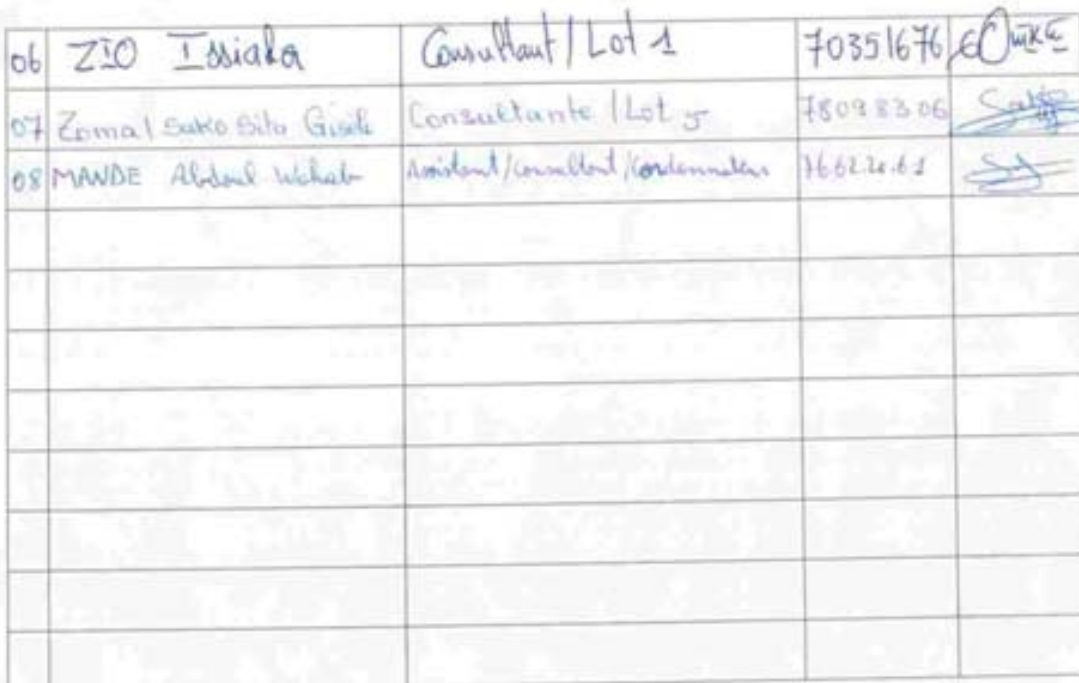 06 ZIO Issiaka Consultant / Lot 1 70351676
07 Zoma / Sako Sita Gisèle Consultante / Lot 5 78098306
08 MANDE Abdoul Wahab Assistant/Consultant/